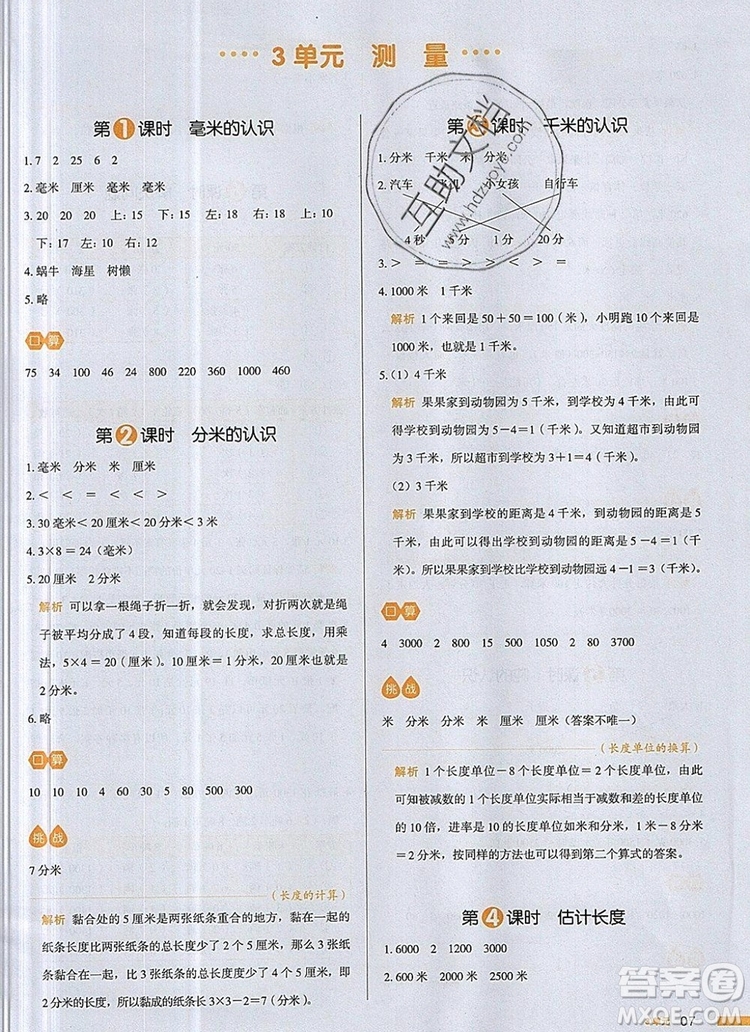 3单元 测 量
第1课时 毫米的认识
1.7 2 25 6 2
2.毫米 厘米 毫米 毫米 毫米
3.20 20 20 上:15 下:15 左:18 右:18 上:10
下:17 左:10 右:12
4.蜗牛 海星 树懒
5.略
口算
75 34 100 46 24 800 230 1000 460
第2课时 分米的认识
1.毫米 分米 米 厘米
2.< < = < < >
3.30毫米<20厘米<20分米<3米
4.3×8=24(毫米)
5.20厘米 2分米
解析 可以拿一根绳子折一折,就会发现,对折两次就是绳
子被平均分成了4段,知道每段的长度,求总长度,用乘
法,5×4=20(厘米)。10厘米=1分米,所以20厘米=
2分米。
6.略
口算
10 10 10 4 60 30 50 500 300
挑战
7分米
(长度的计算)
解析 黏合处的5厘米是两张纸条重合的地方,黏在一起的
纸条长度比两张纸条的总长度少了2个5厘米,3张纸
条黏合后的长度比3张纸条的总长度少了4个5厘米,即
2分米,所以黏成的纸条长3×3-2=7(分米)。
第 课时 千米的认识
1.分米 千米 米 分米
2.汽车 小女孩 自行车
4秒 5分 1分 20分
3.> > = > > < > =
4.1000米 1千米
解析 1个来回是50+50=100(米),小明跑10个来回是
1000米,也就是1千米。
5.(1)4千米
解析 果果家到动物园为5千米,到学校为4千米,由此可
得学校到动物园为5-4=1(千米)。又知道超市到动物园
为3千米,所以超市到学校为3+1=4(千米)。
(2)3千米
解析 果果家到学校的距离为4千米,到动物园的距离为5
千米,由此可以得出学校到动物园的距离为5-4=1(千
米)。所以果果家到学校比学校到动物园远4-1=3(千米)。
口算
4 3000 2 800 15 500 1050 2 80 3700
挑战
米 分米 分米 米 厘米 厘米(答案不唯一)
(长度单位的换算)
解析 1个长度单位-8个长度单位=2个长度单位,由此
可知被减数的1个长度单位实际相当于减数和差的长度单位
的10倍,进率是10的长度单位可以是米与分米、分米与厘
米,按照同样的方法也可以得到第二个算式的答案。
第4课时 估计长度
1.6000 2 1200 3000
2.600米 2000米 2500米
07
互助文档
www.hdzuoye.com
答案圈
MXQE.COM